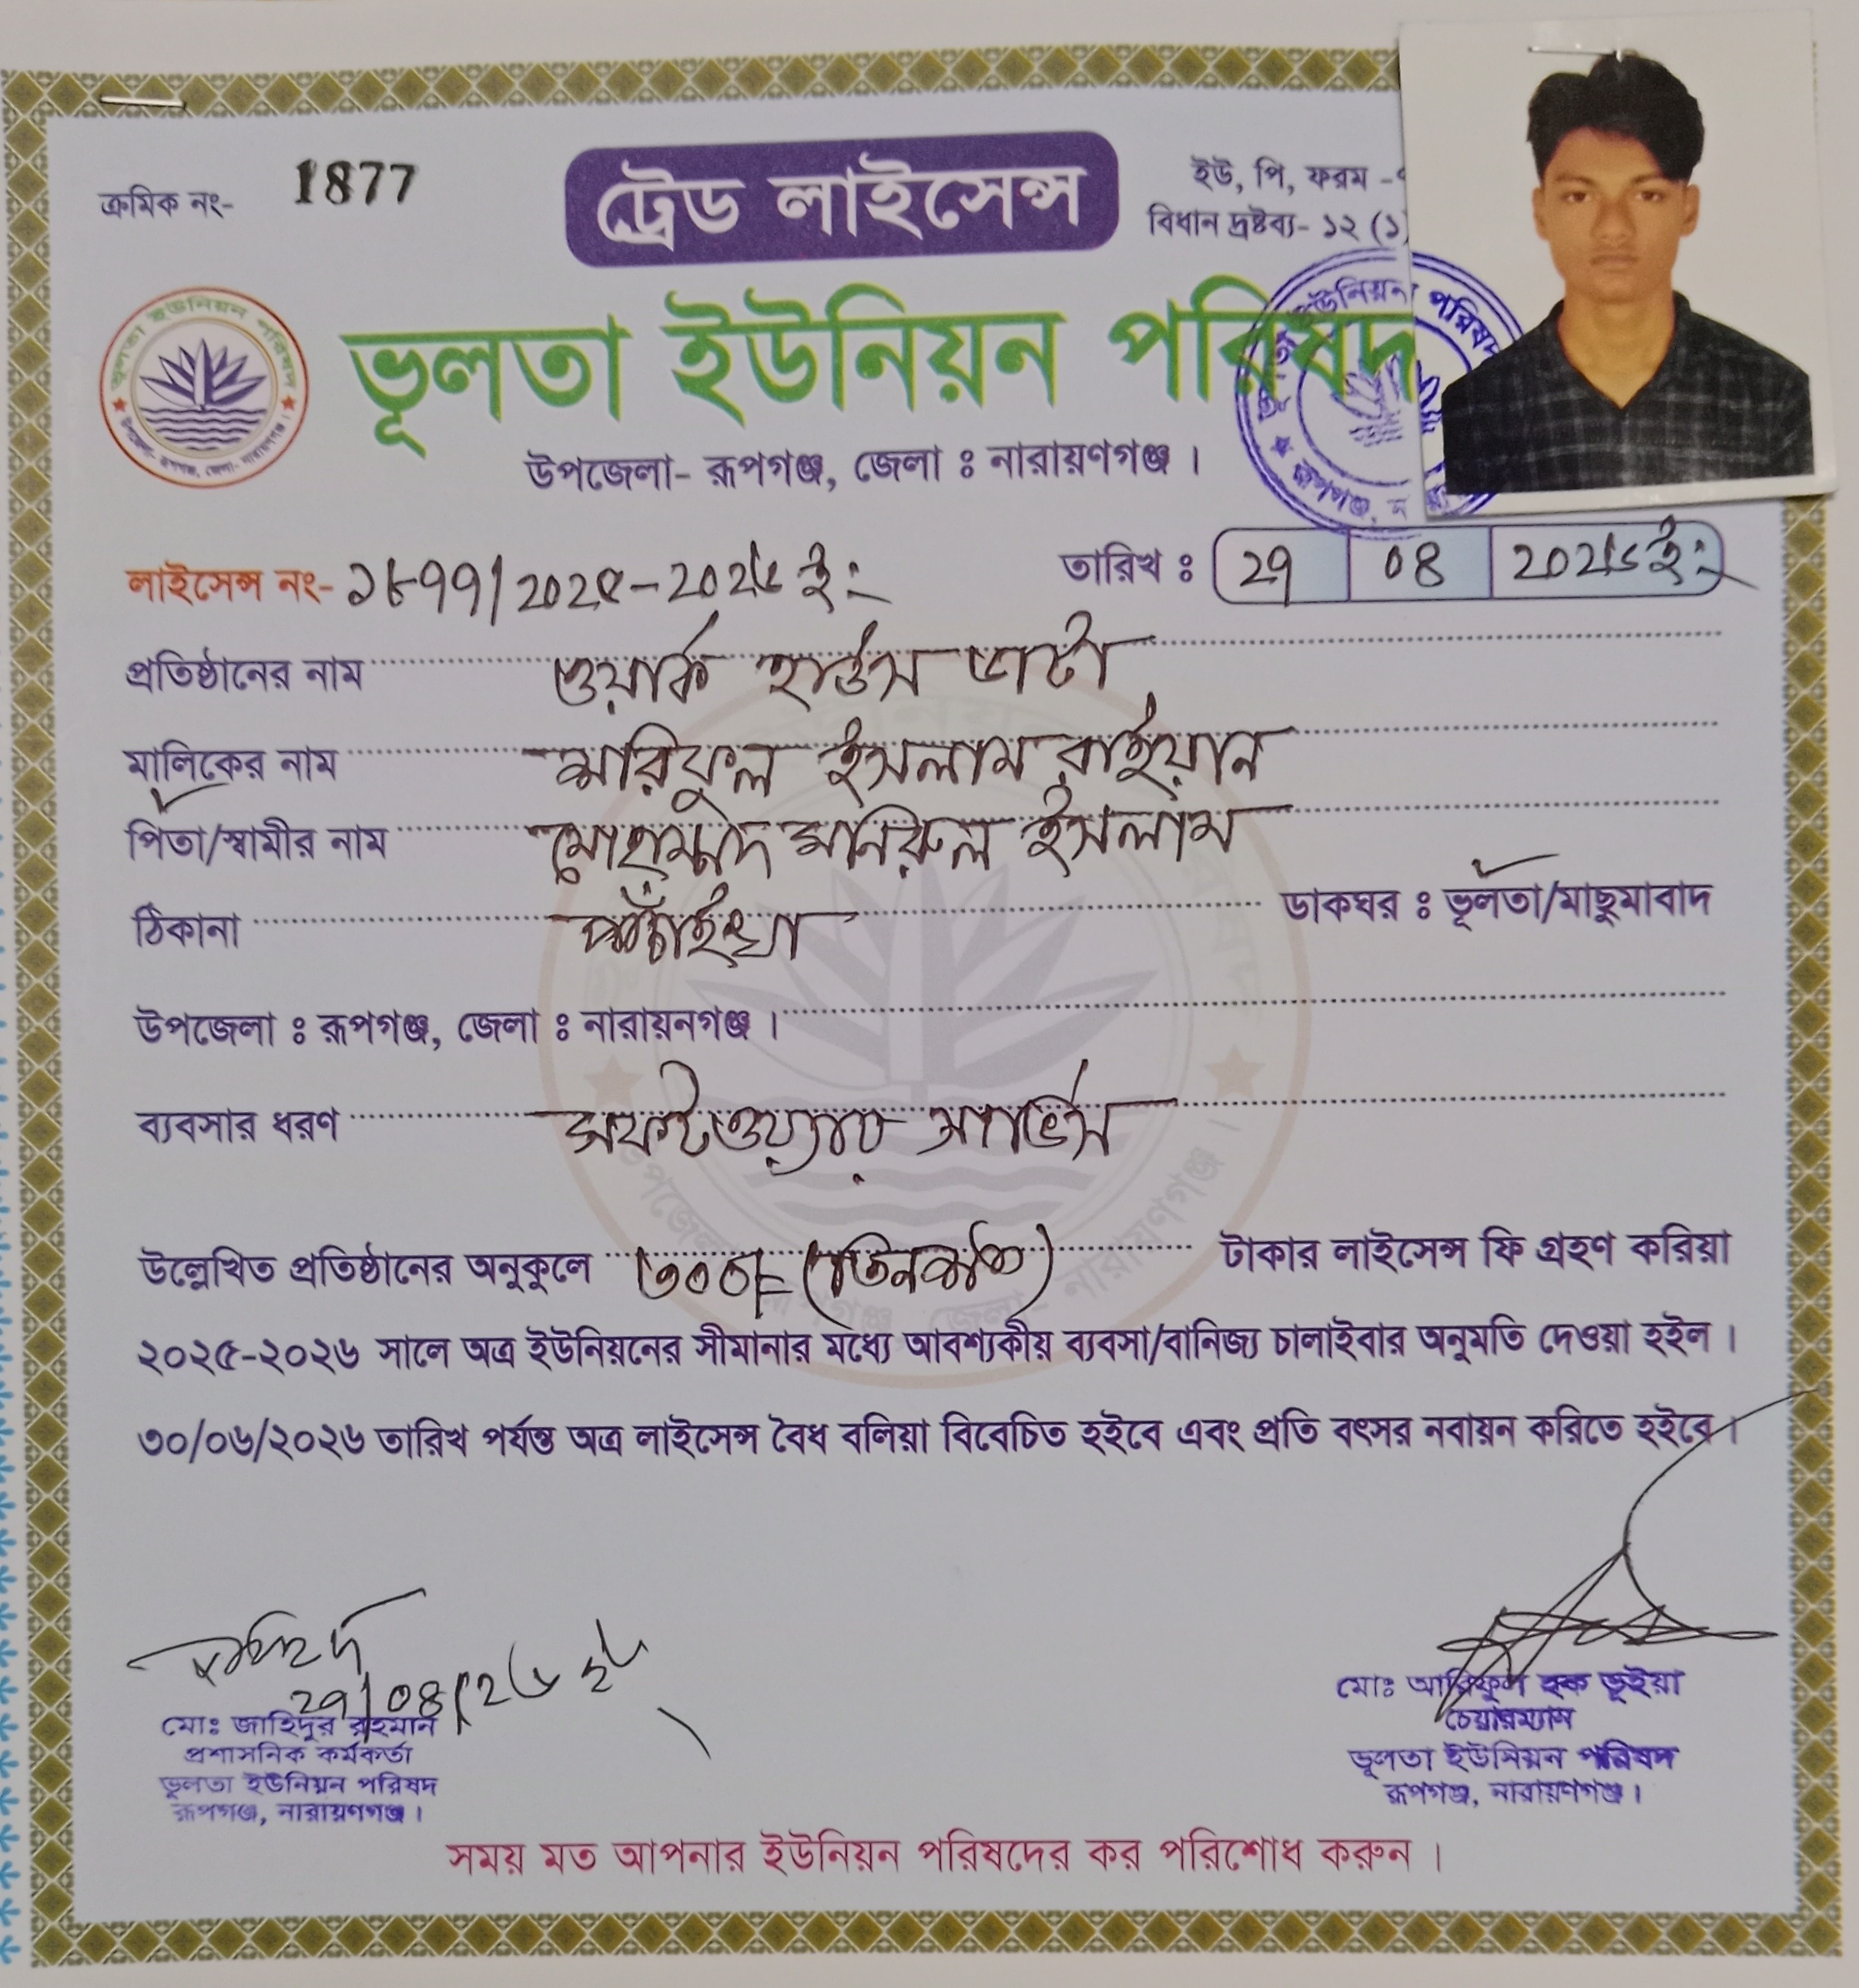 ক্রমিক নং- 1877
ট্রেড লাইসেন্স
ইউ, পি, ফরম -
বিধান দ্রষ্টব্য- ১২ (১)
ভূলতা ইউনিয়ন পরিষদ
উপজেলা- রূপগঞ্জ, জেলা ঃ নারায়ণগঞ্জ ।
লাইসেন্স নং- ১৮৭৭/২০২৫-২০২৬ ইং
তারিখ ঃ ২৭ ০৪ ২০২৬ ইং
প্রতিষ্ঠানের নাম ওয়ার্ক হাউস ডাটা
মালিকের নাম শরিফুল ইসলাম রাইয়ান
পিতা/স্বামীর নাম মোহাম্মদ মনিরুল ইসলাম
ঠিকানা পাঁচাইখা ডাকঘর ঃ ভূলতা/মাছুমাবাদ
উপজেলা ঃ রূপগঞ্জ, জেলা ঃ নারায়নগঞ্জ ।
ব্যবসার ধরণ সফটওয়্যার সার্ভিস
উল্লেখিত প্রতিষ্ঠানের অনুকুলে ৩০০/= (তিনশত) টাকার লাইসেন্স ফি গ্রহণ করিয়া
২০২৫-২০২৬ সালে অত্র ইউনিয়নের সীমানার মধ্যে আবশ্যকীয় ব্যবসা/বানিজ্য চালাইবার অনুমতি দেওয়া হইল ।
৩০/০৬/২০২৬ তারিখ পর্যন্ত অত্র লাইসেন্স বৈধ বলিয়া বিবেচিত হইবে এবং প্রতি বৎসর নবায়ন করিতে হইবে ।
২৭/০৪/২৬ ইং
মোঃ জাহিদুর রহমান
প্রশাসনিক কর্মকর্তা
ভুলতা ইউনিয়ন পরিষদ
রূপগঞ্জ, নারায়ণগঞ্জ ।
মোঃ আরিফুল হক ভূইয়া
চেয়ারম্যান
ভূলতা ইউনিয়ন পরিষদ
রূপগঞ্জ, নারায়ণগঞ্জ ।
সময় মত আপনার ইউনিয়ন পরিষদের কর পরিশোধ করুন ।